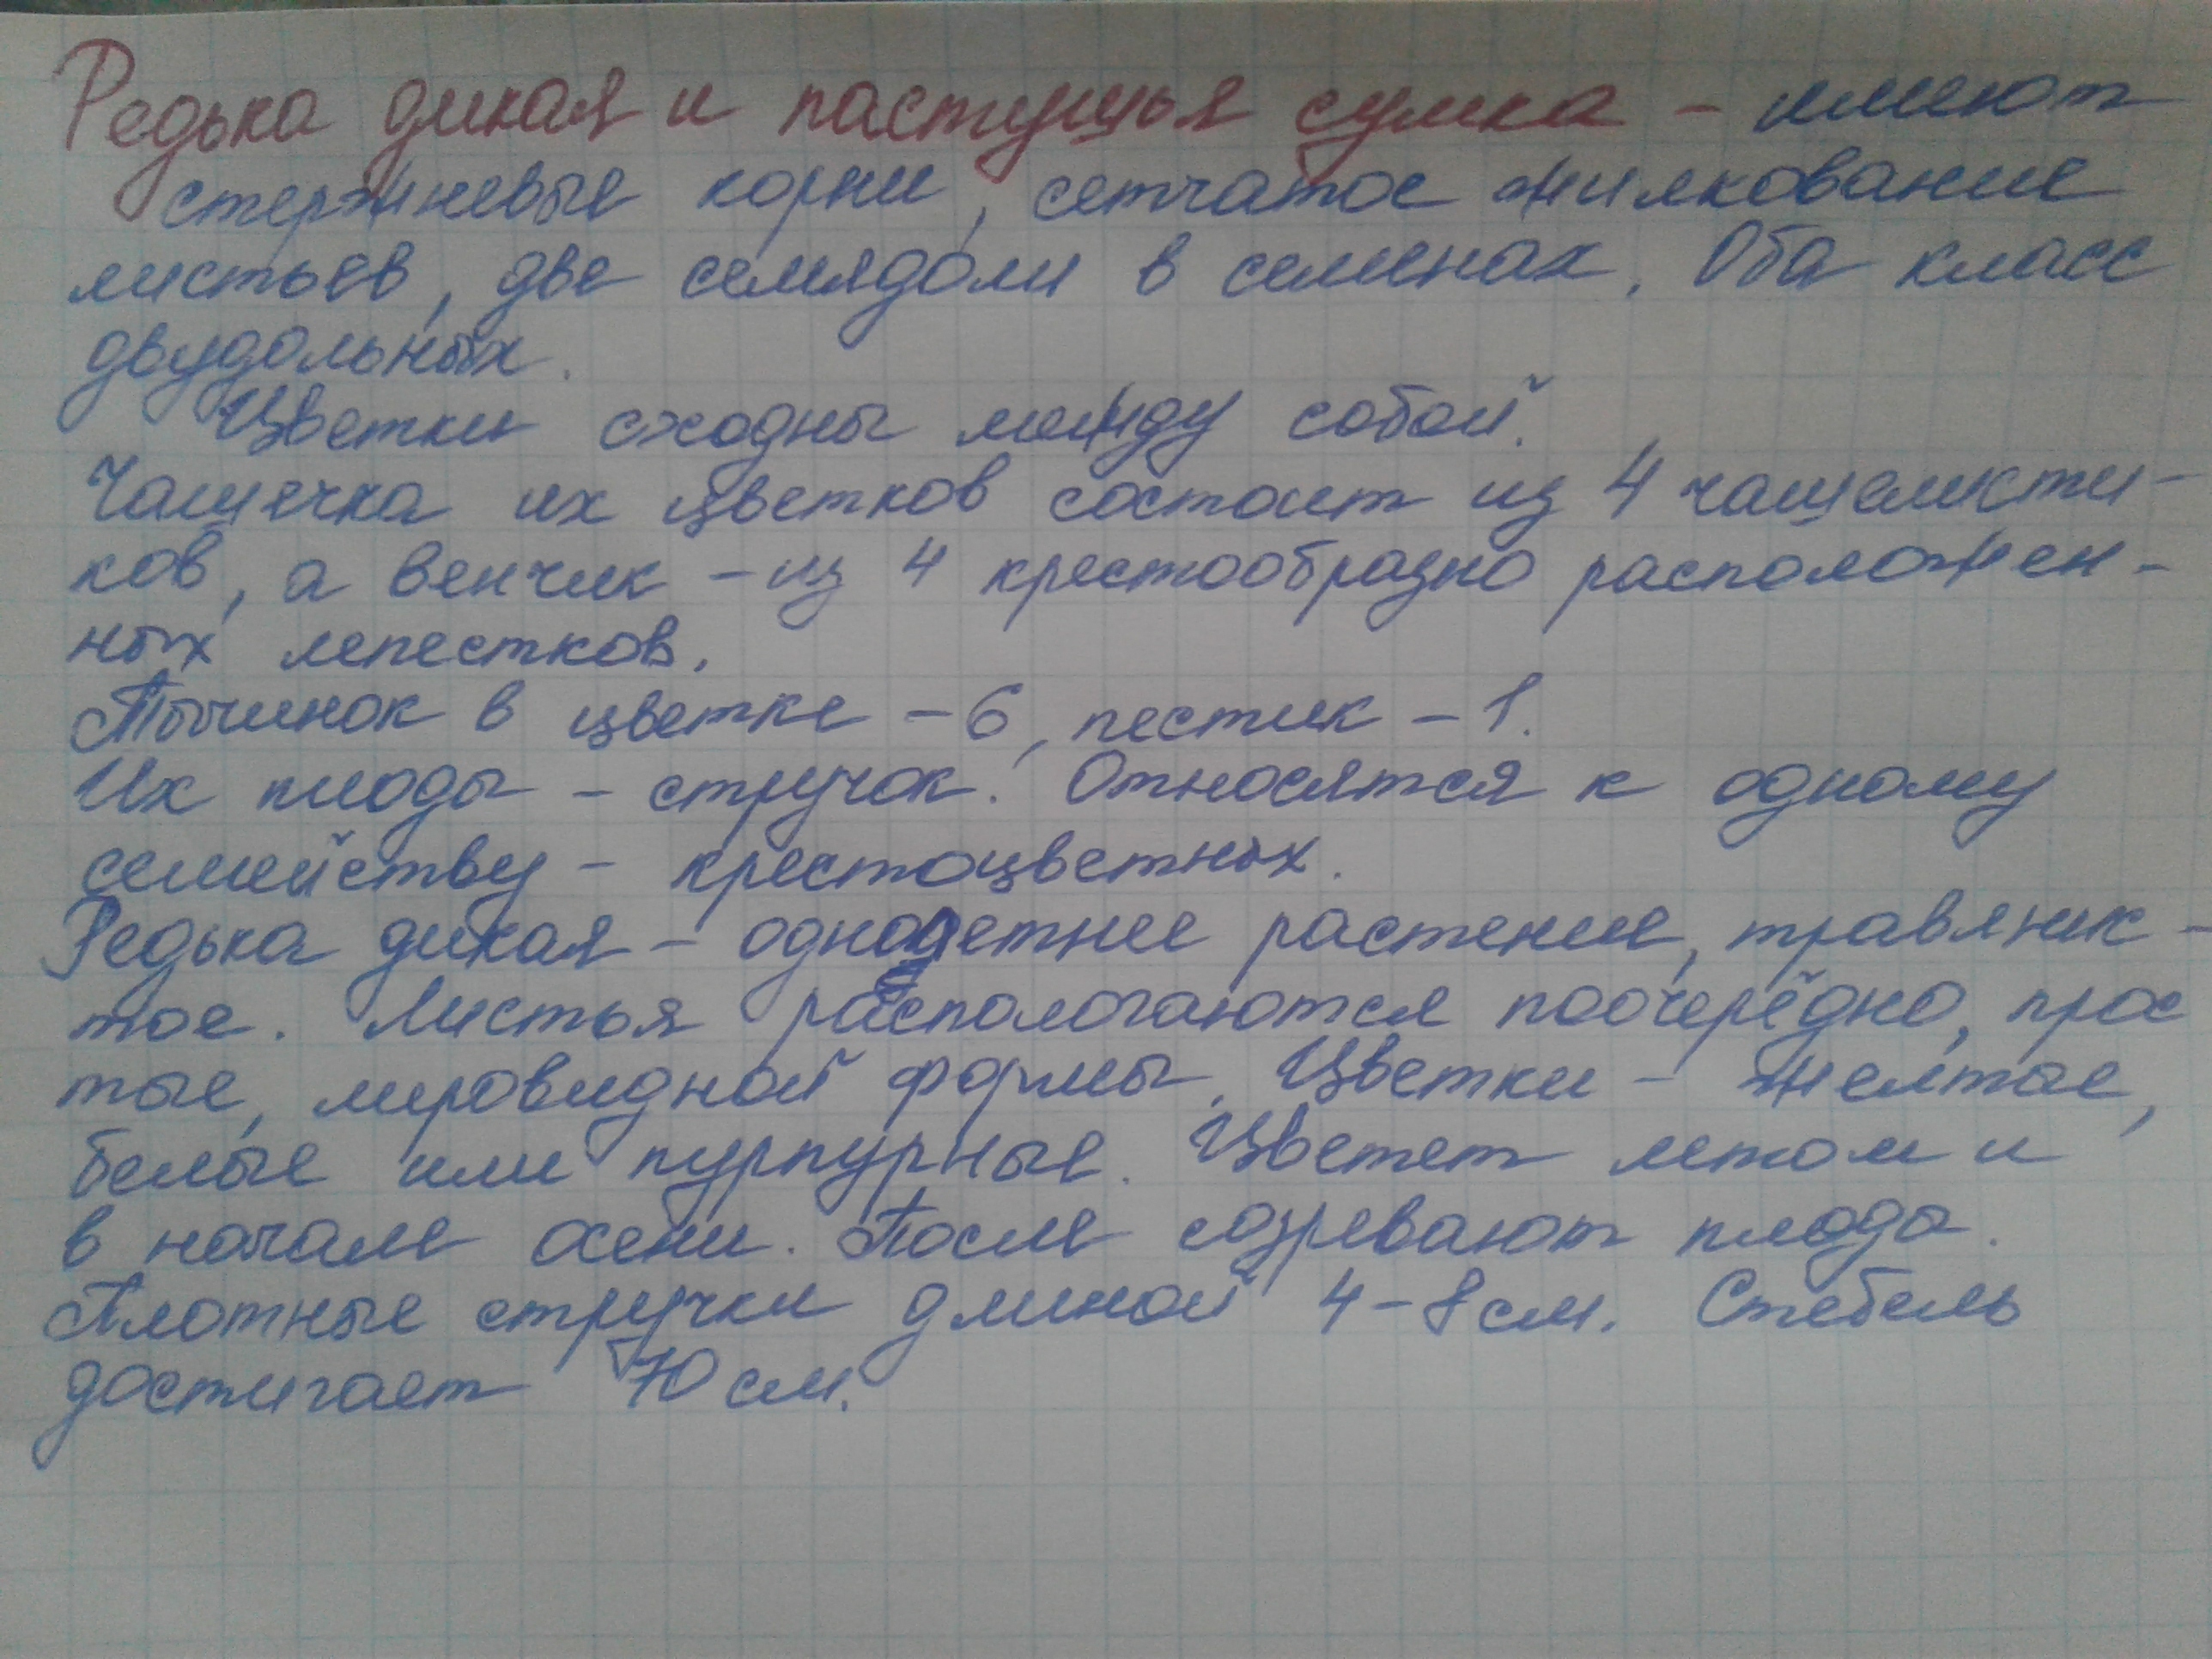 Редька дикая и пастушья сумка – имеют
стержневые корни, сетчатое жилкование
листьев, две семядоли в семенах. Оба класс
двудольных.
Цветки сходны между собой.
Чашечка их цветков состоит из 4 чашелисти-
ков, а венчик – из 4 крестообразно расположен-
ных лепестков.
Тычинок в цветке – 6, пестик – 1.
Их плоды – стручок. Относятся к одному
семейству – крестоцветных.
Редька дикая – однолетнее растение, травянис-
тое. Листья распологаются поочерёдно, прос
тые, лировидной формы. Цветки – желтые,
белые или пурпурные. Цветет летом и
в начале осени. После созревают плоды.
Плотные стручки длиной 4–8 см. Стебель
достигает 70 см.